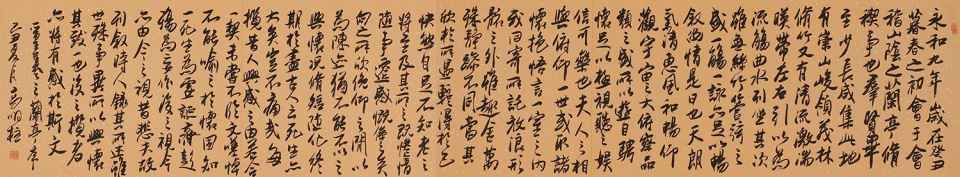 永和九年歲在癸丑
暮春之初會于會
稽山陰之蘭亭脩
禊事也群賢畢
至少長咸集此地
有崇山峻領茂林
脩竹又有清流激湍
暎帶左右引以為
流觴曲水列坐其次
雖無絲竹管弦之
盛一觴一詠亦足以暢
敘幽情是日也天朗
氣清惠風和暢仰
觀宇宙之大俯察品
類之盛所以遊目騁
懷足以極視聽之娛
信可樂也夫人之相
與俯仰一世或取諸
懷抱悟言一室之內
或因寄所託放浪形
骸之外雖趣舍萬
殊靜躁不同當其
欣於所遇輒得於己
快然自足不知老之
將至及其所之既惓情
隨事遷感慨係之矣
向之所欣俛仰之間以
為陳迹猶不能不以之
興懷況脩短隨化終
期於盡古人云死生亦
大矣豈不痛哉每
攬昔人興感之由若合
一契未嘗不臨文嗟悼
不能喻之於懷固知
一死生為虛誕齊彭
殤為妄作後之視今
亦由今之視昔悲夫故
列敘時人錄其所述雖
世殊事異所以興懷
其致一也後之攬者
亦將有感於斯文
王羲之蘭亭序